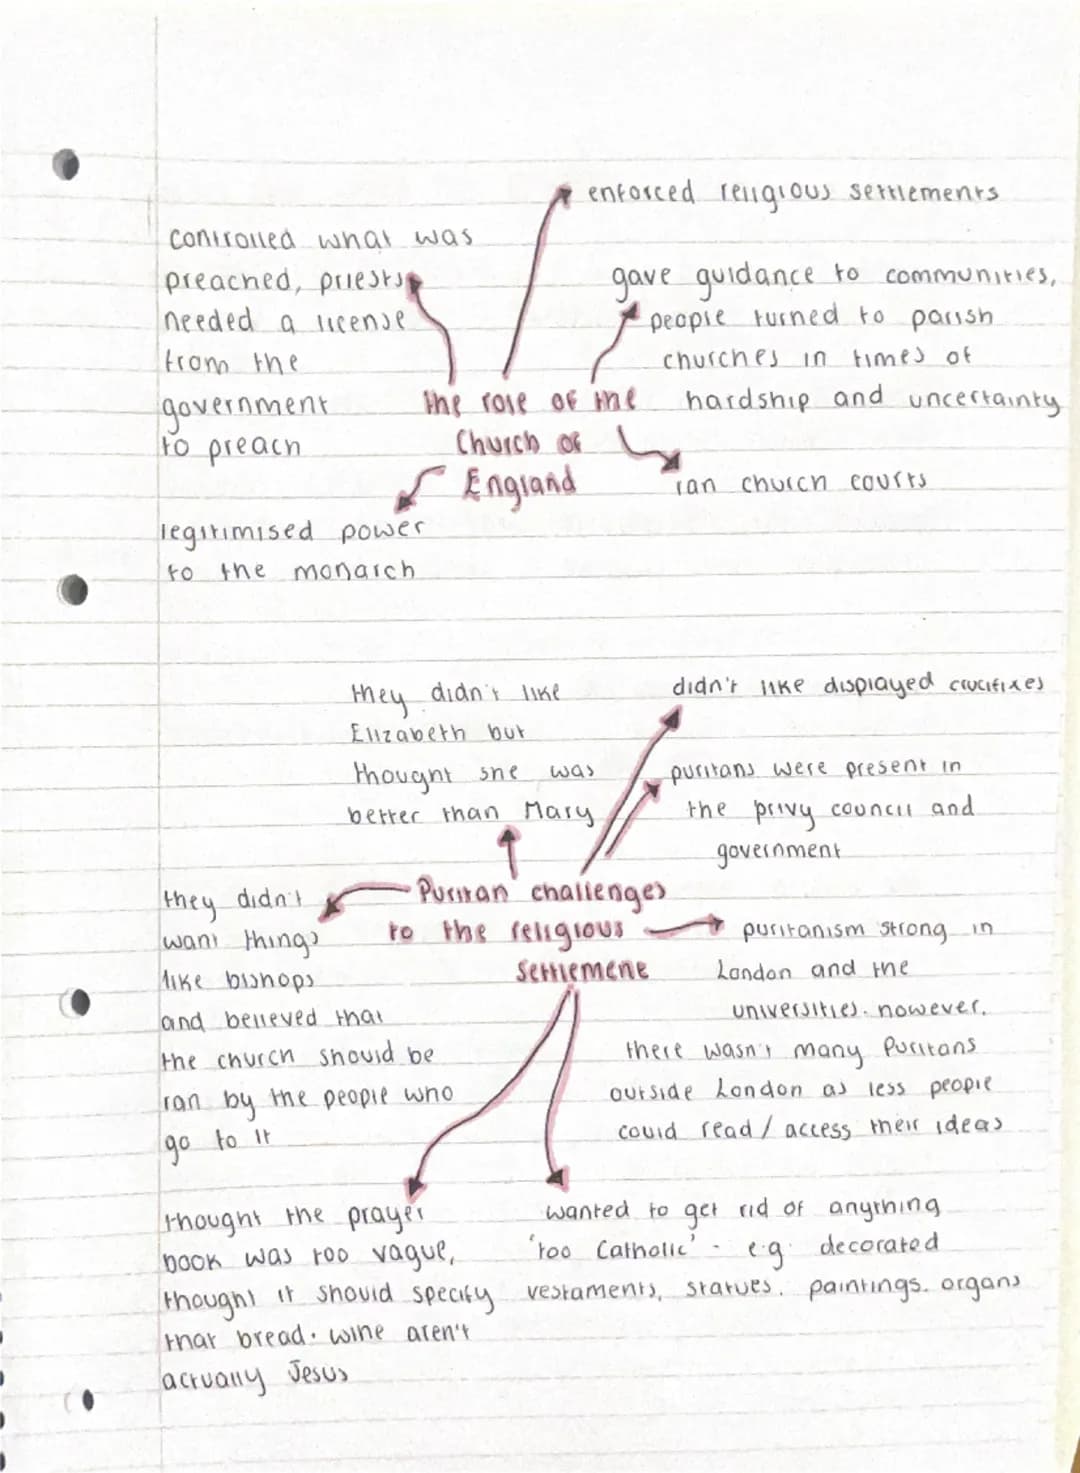 enforced religious settlements
controlled what was
preached, priests
needed a license
from the
government
to preach
gave guidance to communities,
people turned to parish
churches in times of
hardship and uncertainty
the role of the
Church of
England
ran church courts
legitimised power
to the monarch
they didn't like
Elizabeth but
thought she was
better than Mary
didn't like displayed crucifixes
puritans were present in
the privy council and
government
they didn't
want things
like bishops
and believed that
the church should be
ran by the people who
go to it
Puritan challenges
to the religious
settlement
puritanism strong in
London and the
universities. however,
there wasn't many Puritans
outside London as less people
could read / access their ideas
thought the prayer
book was too vague,
thought it should specify
that bread. wine aren't
actually Jesus
wanted to get rid of anything
'too Catholic' - e.g. decorated
vestaments, statues. paintings. organs